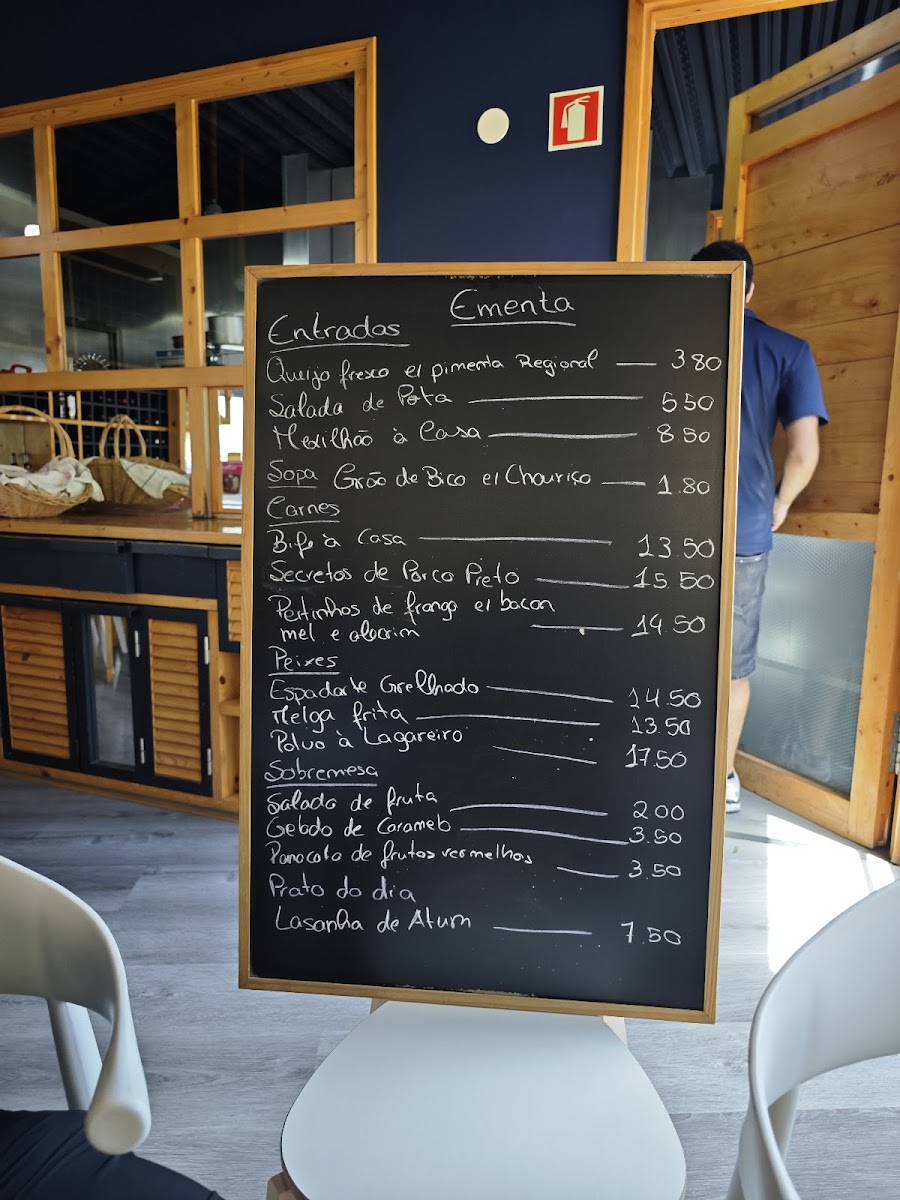 Ementa
Entradas
Queijo fresco c/ pimenta Regional — 3.80
Salada de Pota — 5.50
Mexilhão à Casa — 8.50
Sopa Grão de Bico c/ Chouriço — 1.80
Carnes
Bife à Casa — 13.50
Secretos de Porco Preto — 15.50
Peitinhos de frango c/ bacon
mel e alecrim — 14.50
Peixes
Espadarte Grelhado — 14.50
Melga frita — 13.50
Polvo à Lagareiro — 17.50
Sobremesa
Salada de fruta — 2.00
Gelado de Caramelo — 3.50
Panacota de frutos vermelhos — 3.50
Prato do dia
Lasanha de Atum — 7.50